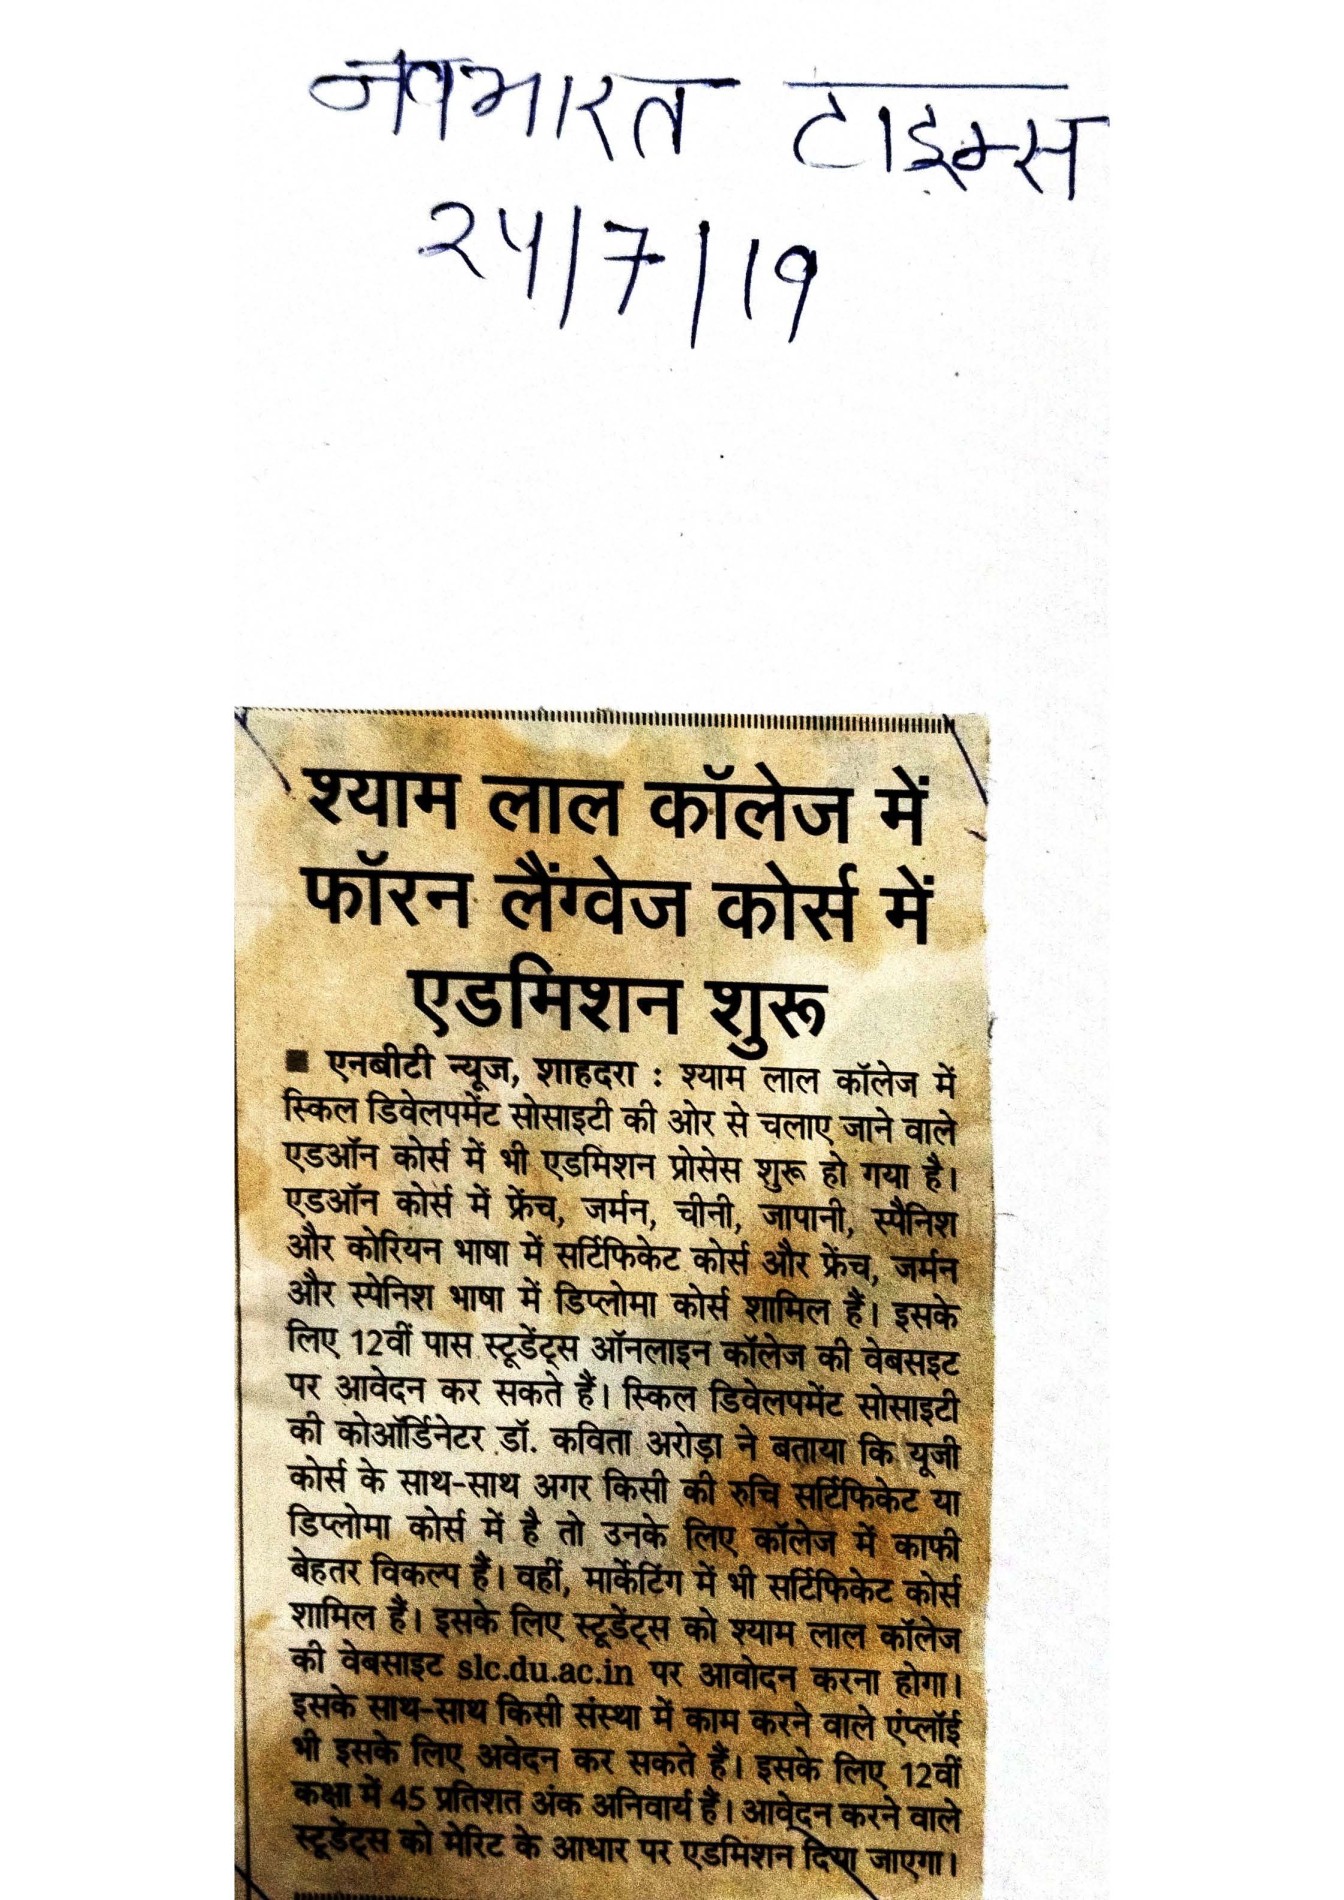 नवभारत टाइम्स
२५/7/19
श्याम लाल कॉलेज में
फॉरन लैंग्वेज कोर्स में
एडमिशन शुरू
■ एनबीटी न्यूज, शाहदरा : श्याम लाल कॉलेज में
स्किल डिवेलपमेंट सोसाइटी की ओर से चलाए जाने वाले
एडऑन कोर्स में भी एडमिशन प्रोसेस शुरू हो गया है।
एडऑन कोर्स में फ्रेंच, जर्मन, चीनी, जापानी, स्पैनिश
और कोरियन भाषा में सर्टिफिकेट कोर्स और फ्रेंच, जर्मन
और स्पेनिश भाषा में डिप्लोमा कोर्स शामिल हैं। इसके
लिए 12वीं पास स्टूडेंट्स ऑनलाइन कॉलेज की वेबसइट
पर आवेदन कर सकते हैं। स्किल डिवेलपमेंट सोसाइटी
की कोऑर्डिनेटर डॉ. कविता अरोड़ा ने बताया कि यूजी
कोर्स के साथ-साथ अगर किसी की रुचि सर्टिफिकेट या
डिप्लोमा कोर्स में है तो उनके लिए कॉलेज में काफी
बेहतर विकल्प हैं। वहीं, मार्केटिंग में भी सर्टिफिकेट कोर्स
शामिल हैं। इसके लिए स्टूडेंट्स को श्याम लाल कॉलेज
की वेबसाइट slc.du.ac.in पर आवोदन करना होगा।
इसके साथ-साथ किसी संस्था में काम करने वाले एंप्लॉई
भी इसके लिए अवेदन कर सकते हैं। इसके लिए 12वीं
कक्षा में 45 प्रतिशत अंक अनिवार्य हैं। आवेदन करने वाले
स्टूडेंट्स को मेरिट के आधार पर एडमिशन दिया जाएगा।